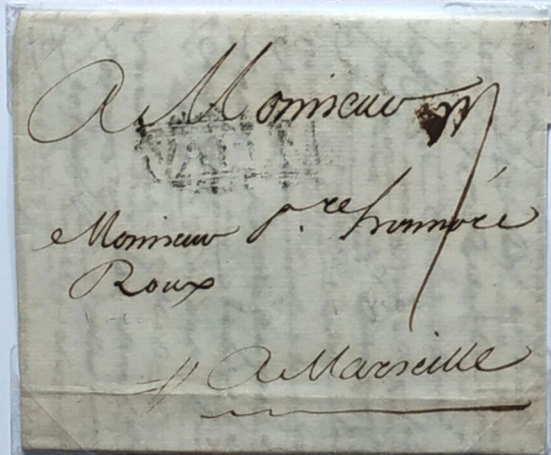 A Monsieur
Monsieur p.re honnoré
Roux
A Marseille